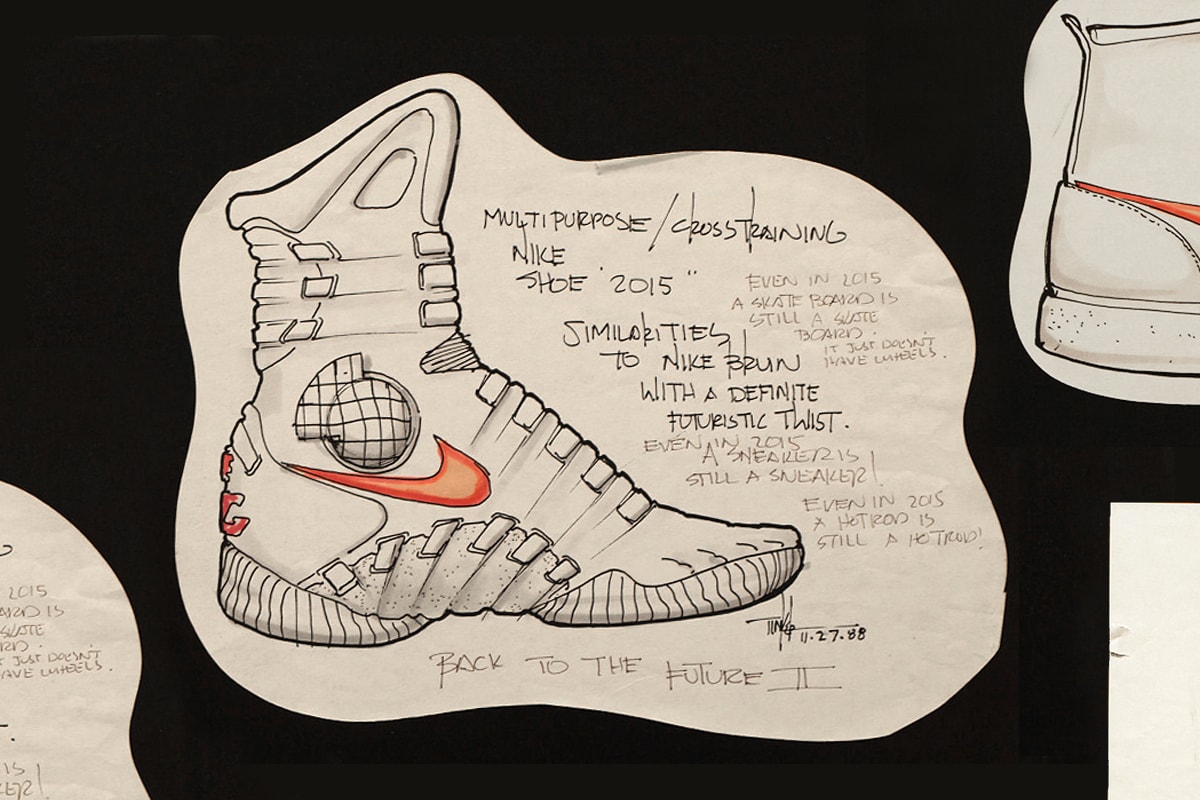 MULTIPURPOSE/CROSSTRAINING
NIKE
SHOE '2015"
EVEN IN 2015
A SKATE BOARD IS
STILL A SKATE
BOARD.
IT JUST DOESN'T
HAVE WHEELS.
SIMILARITIES
TO NIKE BRUIN
WITH A DEFINITE
FUTURISTIC TWIST.
EVEN IN 2015
A SNEAKER IS
STILL A SNEAKER!
EVEN IN 2015
A HOTROD IS
STILL A HOTROD!
11.27.88
BACK TO THE FUTURE II
2015
IS
SKATE
JUST DOESN'T
HAVE WHEELS.